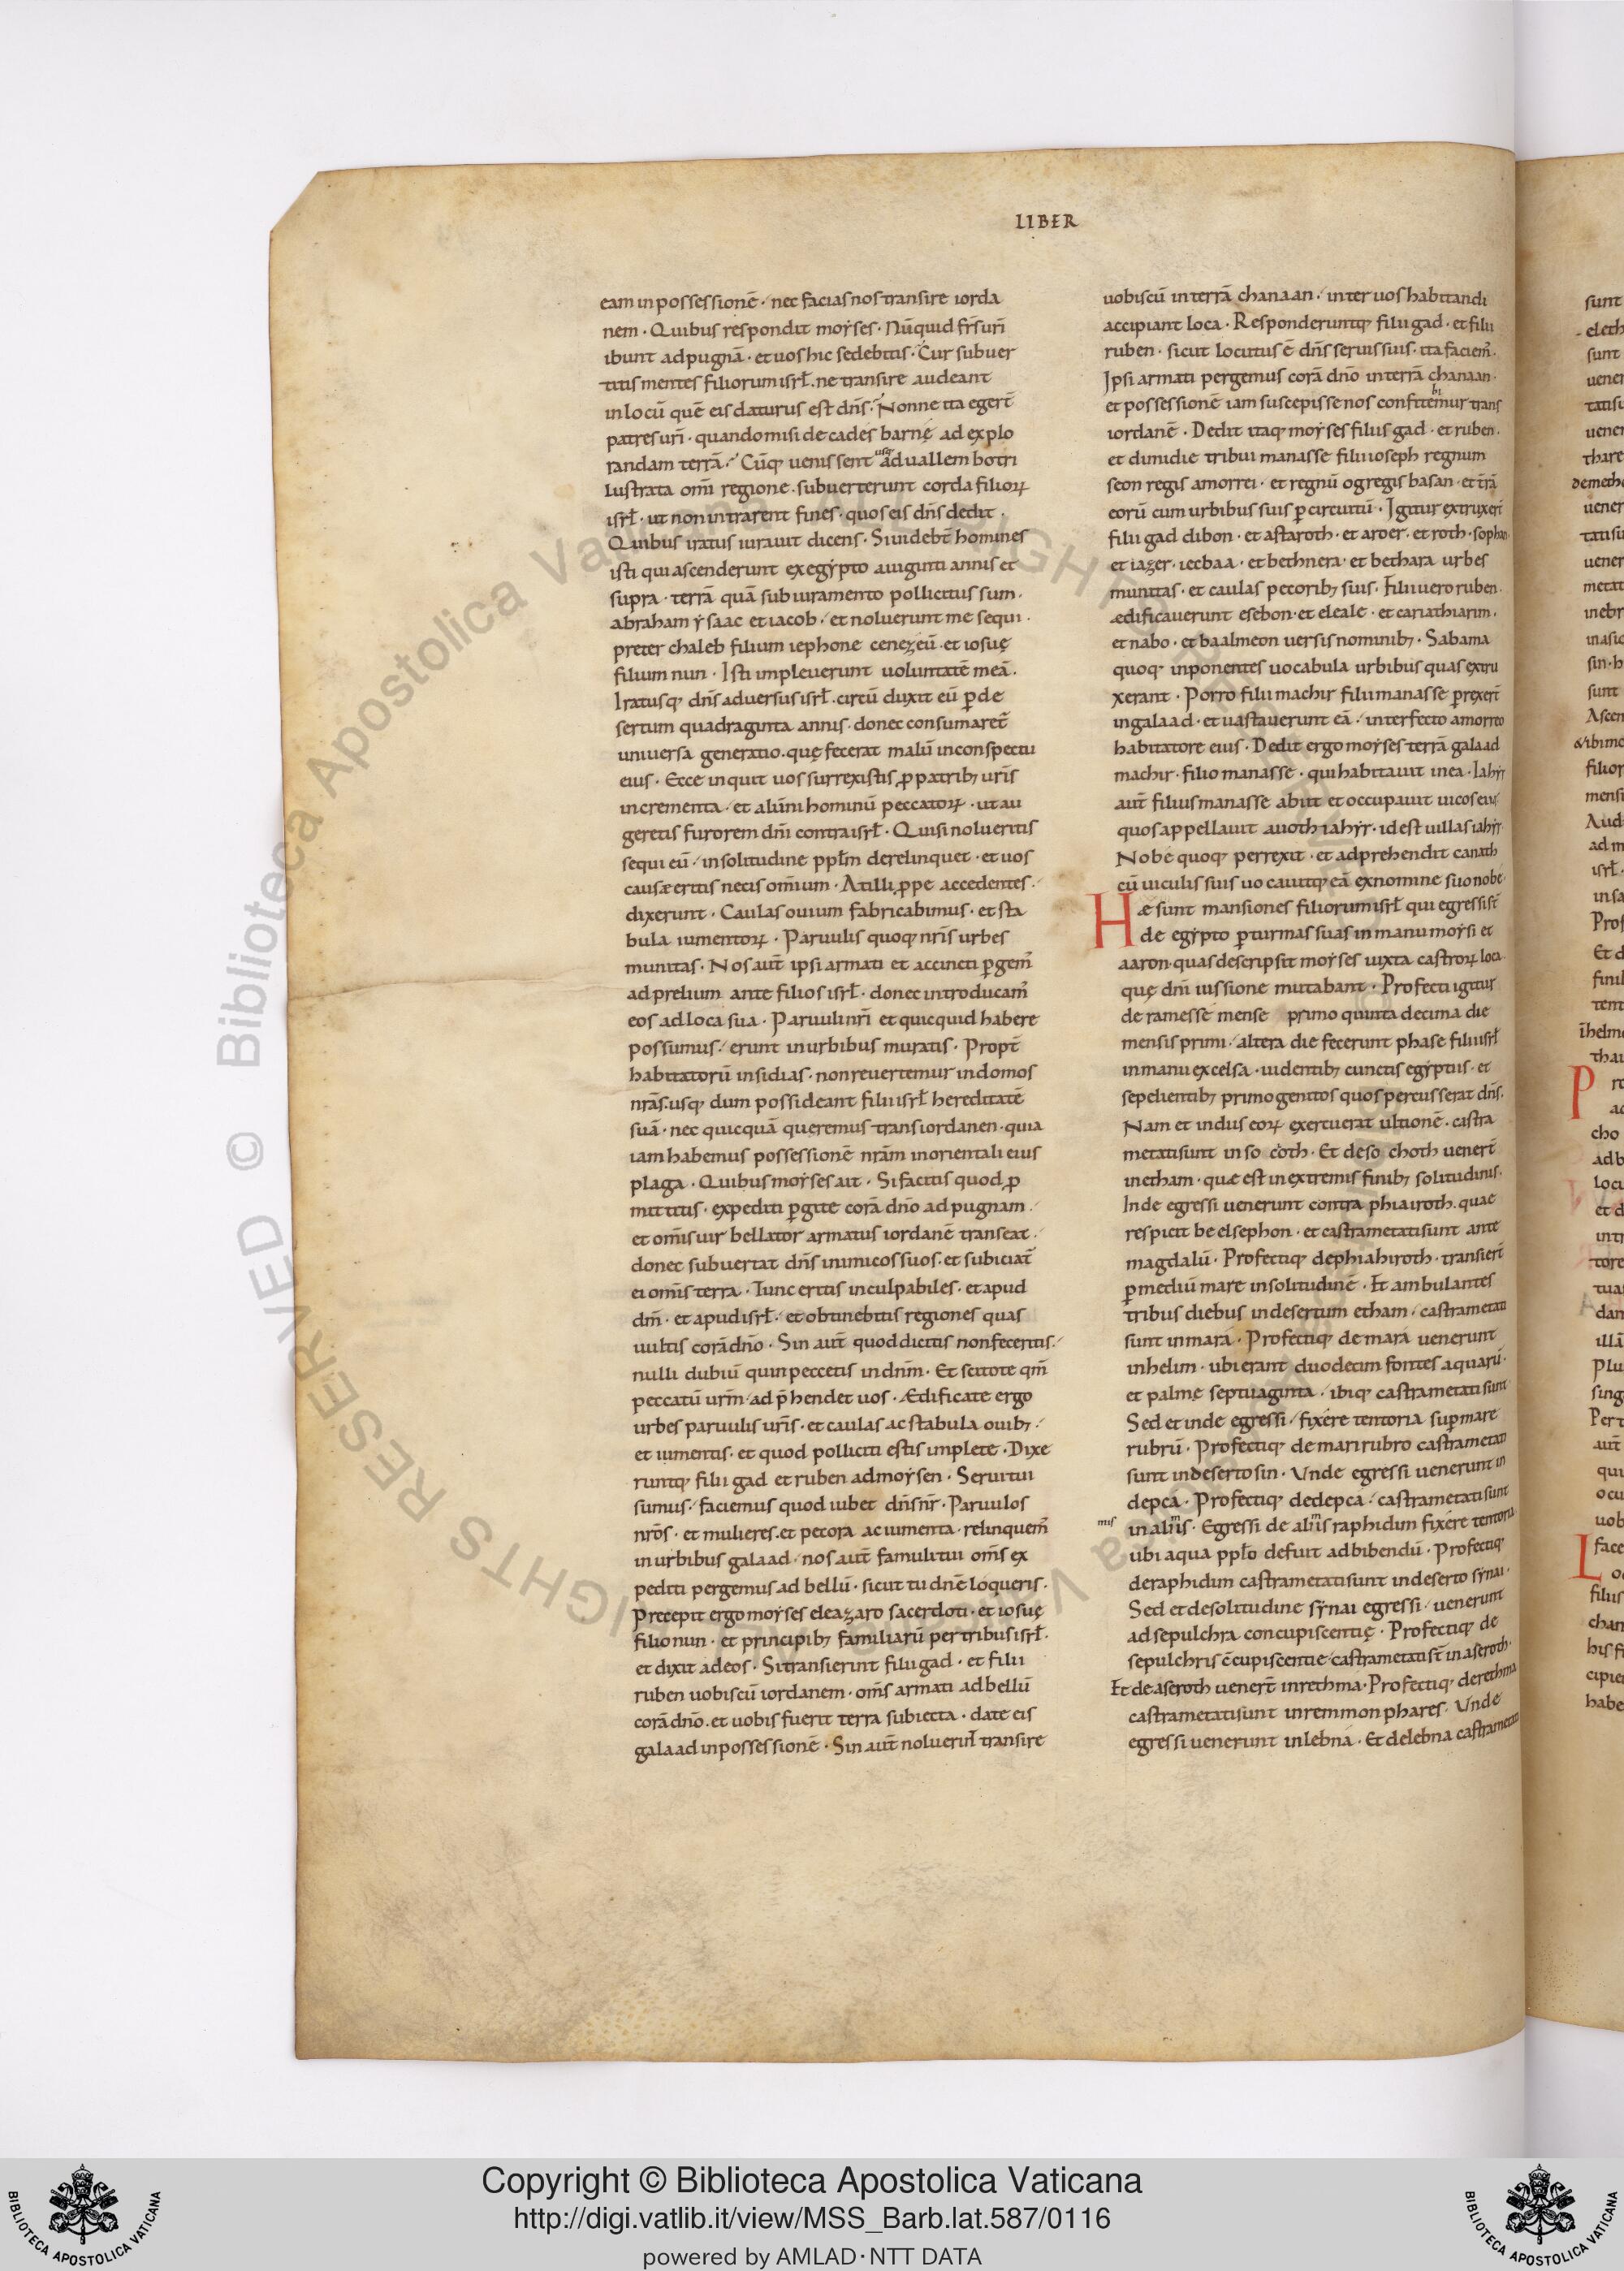 LIBER
eam in possessionē · nec facias nos transire iorda
nem · Quibus respondit moẏses · Nūquid fr̄s ur̄i
ibunt ad pugnā · et uos hic sedebitis · Cur subuer
titis mentes filiorum isrł · ne transire audeant
in locū quē eis daturus est dn̄s · Nonne ita egert̄
patres ur̄i · quando misi de cades barnę ad explo
randam terrā · Cūq; uenissent usq; ad uallem botri
lustrata om̄i regione · subuerterunt corda filioꝝ
isrł · ut non intrarent fines · quos eis dn̄s dedit ·
Quibus iratus iurauit dicens · Si uidebt̄ homines
isti qui ascenderunt ex egẏpto a uiginti annis et
supra · terrā quā sub iuramento pollicitus sum ·
abraham ẏsaac et iacob · et noluerunt me sequi ·
preter chaleb filium iephone cenezeū · et iosuę
filium nun · Isti impleuerunt uoluntatē meā ·
Iratusq; dn̄s aduersus isrł · circū duxit eū ꝑ de
sertum quadraginta annis · donec consumaret̄
uniuersa generatio · quę fecerat malū in conspectu
eius · Ecce inquit uos surrexistis ꝓ patrib; ur̄is
incrementa · et alūni hominū peccatoꝝ · ut au
geretis furorem dn̄i contra isrł · Qui si nolueritis
sequi eū · in solitudine ppłm derelinquet · et uos
causæ eritis necis om̄ium · At illi ꝓpe accedentes ·
dixerunt · Caulas ouium fabricabimus · et sta
bula iumentoꝝ · Paruulis quoq; nr̄is urbes
munitas · Nos aut̄ ipsi armati et accincti ꝑgem̄
ad prelium ante filios isrł · donec introducam̄
eos ad loca sua · Paruuli nr̄i et quicquid habere
possumus · erunt in urbibus muratis · Propt̄
habitatorū insidias · non reuertemur in domos
nr̄as · usq; dum possideant filii isrł hereditatē
suā · nec quicquā queremus trans iordanen · quia
iam habemus possessionē nr̄am in orientali eius
plaga · Quibus moẏses ait · Si facitis quod ꝓ
mittitis · expediti ꝑgite corā dn̄o ad pugnam ·
et om̄is uir bellator armatus iordanē transeat ·
donec subuertat dn̄s inimicos suos · et subiciat̄
ei om̄is terra · Tunc eritis inculpabiles · et apud
dm̄ · et apud isrł · et obtinebitis regiones quas
uultis corā dn̄o · Sin aut̄ quod dicitis non feceritis ·
nulli dubiū quin peccetis in dn̄m · Et scitote qm̄
peccatū ur̄m · ad p̄hendet uos · Ædificate ergo
urbes paruulis ur̄is · et caulas ac stabula ouib; ·
et iumentis · et quod polliciti estis implete · Dixe
runtq; filii gad et ruben ad moẏsen · Serui tui
sumus · faciemus quod iubet dn̄s nr̄ · Paruulos
nr̄os · et mulieres · et pecora ac iumenta · relinquem̄
in urbibus galaad · nos aut̄ famuli tui om̄s ex
pediti pergemus ad bellū · sicut tu dn̄e loqueris ·
Precepit ergo moẏses eleazaro sacerdoti · et iosuę
filio nun · et principib; familiarū per tribus isrł ·
et dixit ad eos · Si transierint filii gad · et filii
ruben uobiscū iordanem · om̄s armati ad bellū
corā dn̄o · et uobis fuerit terra subiecta · date eis
galaad in possessionē · Sin aut̄ noluerint̄ transire
uobiscū in terrā chanaan · inter uos habitandi
accipiant loca · Responderuntq; filii gad · et filii
ruben · sicut locutus ē dn̄s seruis suis · ita faciem̄ ·
Ipsi armati pergemus corā dn̄o in terrā chanaan ·
et possessionē iam suscepisse nos confitemur trans
iordanē · Dedit itaq; moẏses filiis gad · et ruben ·
et dimidie tribui manasse filii ioseph regnum
seon regis amorrei · et regnū og regis basan · et tr̄ā
eorū cum urbibus suis ꝑ circuitū · Igitur extruxert̄
filii gad dibon · et astaroth · et aroer · et roth · sophan
et iazer · iecbaa · et bethnera · et bethara urbes
munitas · et caulas pecorib; suis · Filii uero ruben ·
ædificauerunt esebon · et eleale · et cariathiarim ·
et nabo · et baalmeon uersis nominib; · Sabama
quoq; inponentes uocabula urbibus quas extru
xerant · Porro filii machir filii manasse ꝑrexert̄
in galaad · et uastauerunt eā · interfecto amorreo
habitatore eius · Dedit ergo moẏses terrā galaad
machir · filio manasse · qui habitauit in ea · Iahẏr
aut̄ filius manasse abiit et occupauit uicos eius
quos appellauit auoth iahẏr · id est uillas iahẏr ·
Nobe quoq; perrexit · et adprehendit canath
cū uiculis suis uocauitq; eā ex nomine suo nobe ·
Hæ sunt mansiones filiorum isrł qui egressi st̄
de egẏpto ꝑ turmas suas in manu moẏsi et
aaron · quas descripsit moẏses iuxta castroꝝ loca ·
quę dn̄i iussione mutabant · Profecti igitur
de ramesse mense primo quinta decima die
mensis primi · altera die fecerunt phase filii isrł
in manu excelsa · uidentib; cunctis egẏptiis · et
sepelientib; primogenitos quos percusserat dn̄s ·
Nam et in diis eoꝝ exercuerat ultionē · castra
metati sunt in so coth · Et de so choth uenert̄
in etham · quæ est in extremis finib; solitudinis ·
Inde egressi uenerunt contra phiairoth · quae
respicit beelsephon · et castrametati sunt ante
magdalū · Profectiq; de phiahiroth · transiert̄
ꝑ mediū mare in solitudinē · Et ambulantes
tribus diebus in desertum etham · castrametati
sunt in mara · Profectiq; de mara uenerunt
in helim · ubi erant duodecim fontes aquarū ·
et palmę septuaginta · ibiq; castrametati sunt
Sed et inde egressi · fixere tentoria suꝑ mare
rubrū · Profectiq; de mari rubro castrametati
sunt in deserto sin · Unde egressi uenerunt in
depca · Profectiq; de depca · castrametati sunt
in aliis · Egressi de aliis raphidim fixere tentoria
ubi aqua ppło defuit ad bibendū · Profectiq;
de raphidim castrametati sunt in deserto sẏnai ·
Sed et de solitudine sẏnai egressi · uenerunt
ad sepulchra concupiscentię · Profectiq; de
sepulchris c̄cupiscentie castrametati st̄ in aseroth ·
Et de aseroth uenert̄ in rethma · Profectiq; de rethma
castrametati sunt in remmon phares · Unde
egressi uenerunt in lebna · Et de lebna castrametati
Copyright © Biblioteca Apostolica Vaticana
http://digi.vatlib.it/view/MSS_Barb.lat.587/0116
powered by AMLAD·NTT DATA
BIBLIOTECA APOSTOLICA VATICANA
BIBLIOTECA APOSTOLICA VATICANA